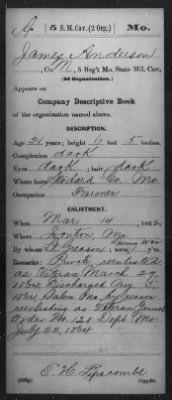 A | 5 S. M. Cav. (2 Org.) | Mo.
James Anderson
, Co. M, 5 Reg't Mo. State Mil. Cav.
(2d Organization.)
Appears on
Company Descriptive Book
of the organization named above.
DESCRIPTION.
Age 21 years; height 6 feet 5 inches.
Complexion dark
Eyes dark; hair dark
Where born Stodard Co. Mo.
Occupation Farmer
ENLISTMENT.
When Mar. 14, 186
Where Ironton, Mo.
By whom Lt Greason; term y'rs.
Remarks: Private reenlisted
as Veteran March 29
1864. Discharged Aug 5
1864, Mo. by reason
reenlisting as Veteran
Order No. 128 Dept Mo.
July 22, 1864
E. H. Lipscombe
Copyist.